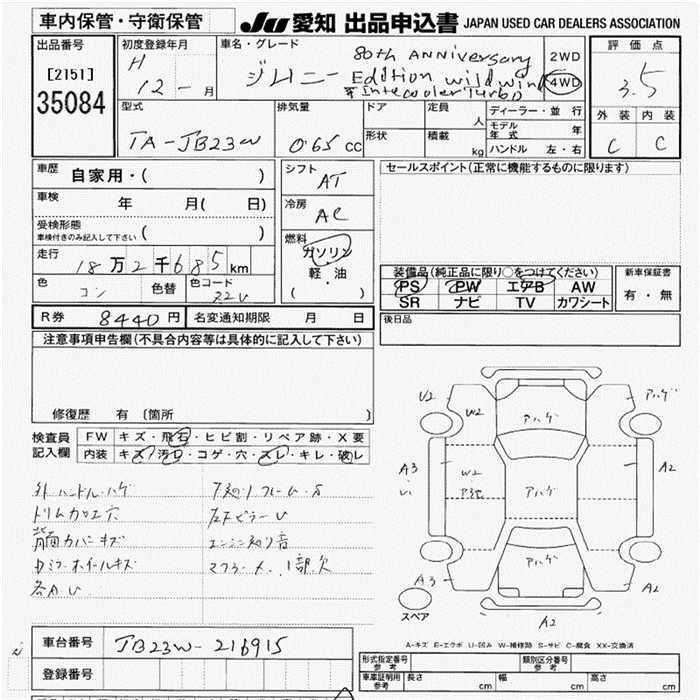 車内保管・守衛保管
JU 愛知 出品申込書 JAPAN USED CAR DEALERS ASSOCIATION
出品番号
[2151]
35084
初度登録年月
H 12 - 月
車名・グレード
ジムニー
80th ANNIVERSARY
Edition wild wind
インタークーラー Turbo
2WD
4WD
評価点
3.5
外装 内装
C C
型式
TA-JB23W
排気量
0.65 cc
ドア
形状
定員 人
積載 kg
ディーラー・並行
モデル年式 年
ハンドル 左・右
車歴 自家用・( )
車検 年 月( 日)
受検形態
車検付きのみ記入して下さい ( )
走行 18万2千685km
色 コン 色替 色コード ZZU
シフト AT
冷房 AC
燃料
ガソリン
軽・油
( )
セールスポイント(正常に機能するものに限ります)
装備品(純正品に限り○をつけてください)
PS PW エアB AW
SR ナビ TV カワシート
新車保証書
有・無
R券 8440円 名変通知期限 月 日
後日品
注意事項申告欄(不具合内容等は具体的に記入して下さい)
修復歴 有 〔箇所 〕
検査員記入欄
FW キズ・飛石・ヒビ割・リペア跡・X要
内装 キズ・汚レ・コゲ・穴・スレ・キレ・破レ
外ハンドル・ハゲ
トリム加工穴
背面カバーキズ
ドミラーホイールキズ
各所U
下廻り フレーム・S
左ピラーU
エンジン廻り音
マフラー・1部欠
U2
W2
アハゲ
アハゲ
A3
W2
アハゲ
A2
アハゲ
A3
A2
A2
スペア
A-キズ E-エクボ U-凹み W-補修跡 S-サビ C-腐食 XX-交換済
車台番号 JB23W-216915
登録番号
形式指定番号 参考
類別区分番号 参考
車庫証明用 参考 長さ cm 幅 cm 高さ cm